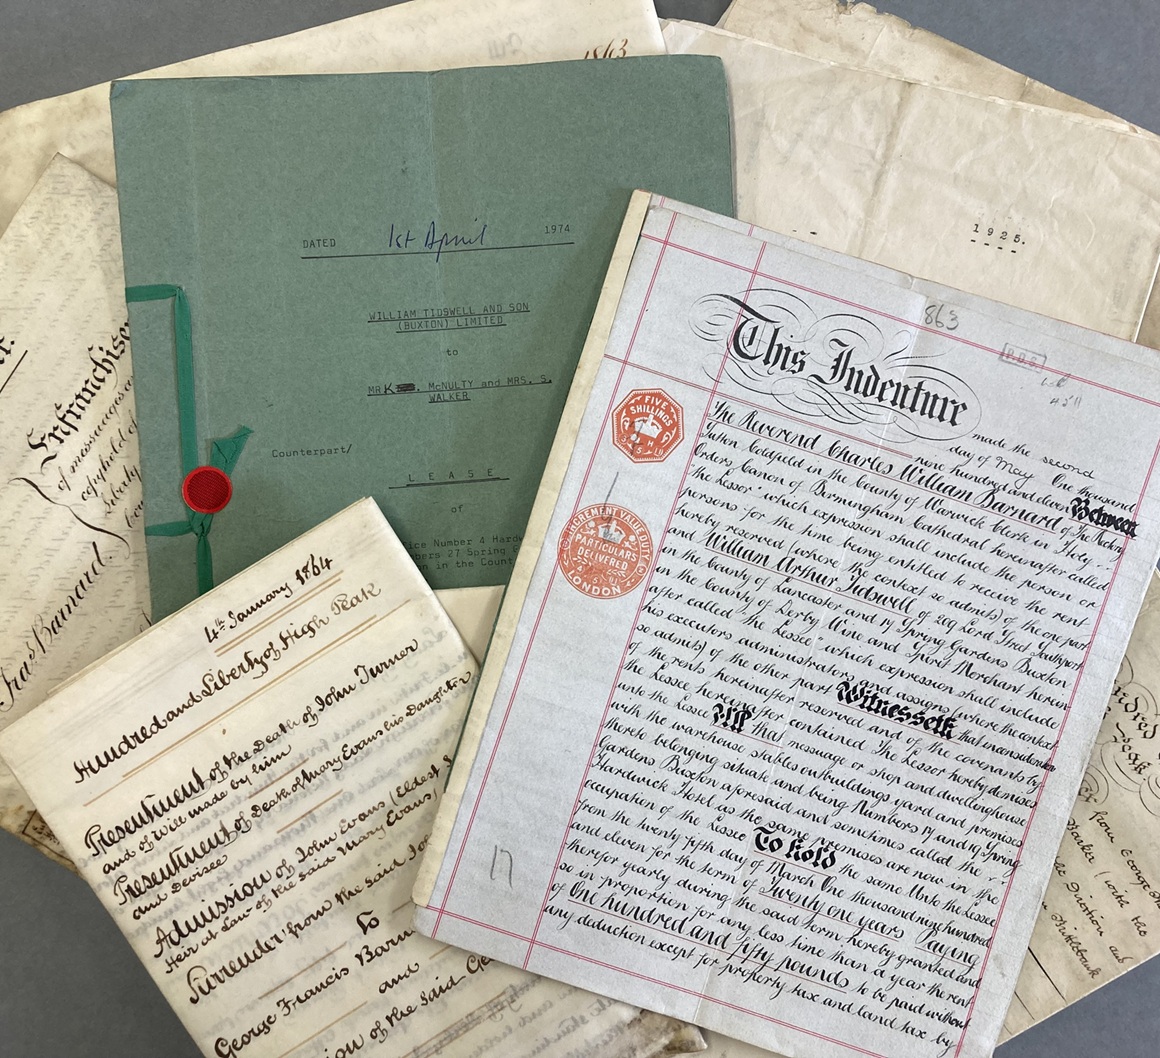 1863
DATED 1st April 1974
WILLIAM TIDSWELL AND SON
(BUXTON) LIMITED
to
MR K. McNULTY and MRS. S.
WALKER
Counterpart/
L E A S E
of
Number 4
27 Spring
in the
1925.
Enfranchise
of messuages
copyhold of
Liberty
Barnard.
4th January 1864
Hundred and Liberty of High Peak
Presentment of the Death of John Turner
and of Will made by him
Presentment of Death of Mary Evans his Daughter
and Devisee
Admission of John Evans (Eldest
Heir at Law of the said Mary Evans)
Surrender from the said
To
George Francis
and
of the said
863
P.D.S.
17
FIVE
SHILLINGS
INCREMENT VALUE DUTY
PARTICULARS
DELIVERED
LONDON
This Indenture
made the second
day of May One thousand
nine hundred and eleven Between
The Reverend Charles William Barnard of The Rectory
Sutton Coldfield in the County of Warwick Clerk in Holy
Orders Canon of Birmingham Cathedral hereinafter called
"the Lessor" which expression shall include the person or
persons for the time being entitled to receive the rent
hereby reserved (where the context so admits) of the one part
and William Arthur Tidswell of 209 Lord Street Southport
in the County of Lancaster and 17 Spring Gardens Buxton
in the County of Derby Wine and Spirit Merchant herein
after called "the Lessee" which expression shall include
his executors administrators and assigns (where the context
so admits) of the other part Witnesseth that in consideration
of the rents hereinafter reserved and of the covenants by
the Lessee hereinafter contained The Lessor hereby demises
unto the Lessee All that messuage or shop and dwellinghouse
with the warehouse stables outbuildings yard and premises
thereto belonging situate and being Numbers 17 and 19 Spring
Gardens Buxton aforesaid and sometimes called the
Hardwick Hotel as the same premises are now in the
occupation of the Lessee To hold the same Unto the Lessee
from the twenty fifth day of March One thousand nine hundred
and eleven for the term of Twenty one years Paying
therefor yearly during the said term hereby granted and
so in proportion for any less time than a year the rent
of One hundred and fifty pounds to be paid without
any deduction except for property tax and land tax by
from George
Barker (with the